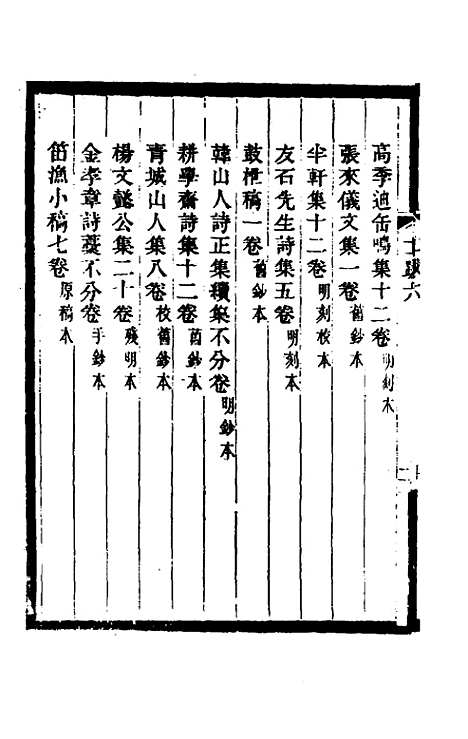 高季迪缶鳴集十二卷 明刻本
張來儀文集一卷 舊鈔本
半軒集十二卷 明刻校本
友石先生詩集五卷 明刻本
鼓枻稿一卷 舊鈔本
韓山人詩正集續集不分卷 明鈔本
耕學齋詩集十二卷 舊鈔本
青城山人集八卷 校舊鈔本
楊文懿公集二十卷 殘明本
金孝章詩藁不分卷 手鈔本
笛漁小稿七卷 原稿本